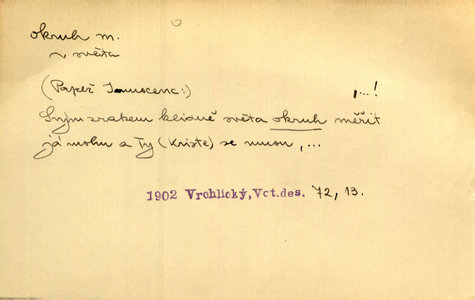 okruh m.
~ světa
(Papež Innocenc:) ,...!
Svým zrakem klidně světa okruh měřit
já mohu a Ty (Kriste) se mnou, ...
1902 Vrchlický, Vct.des. 72, 13.